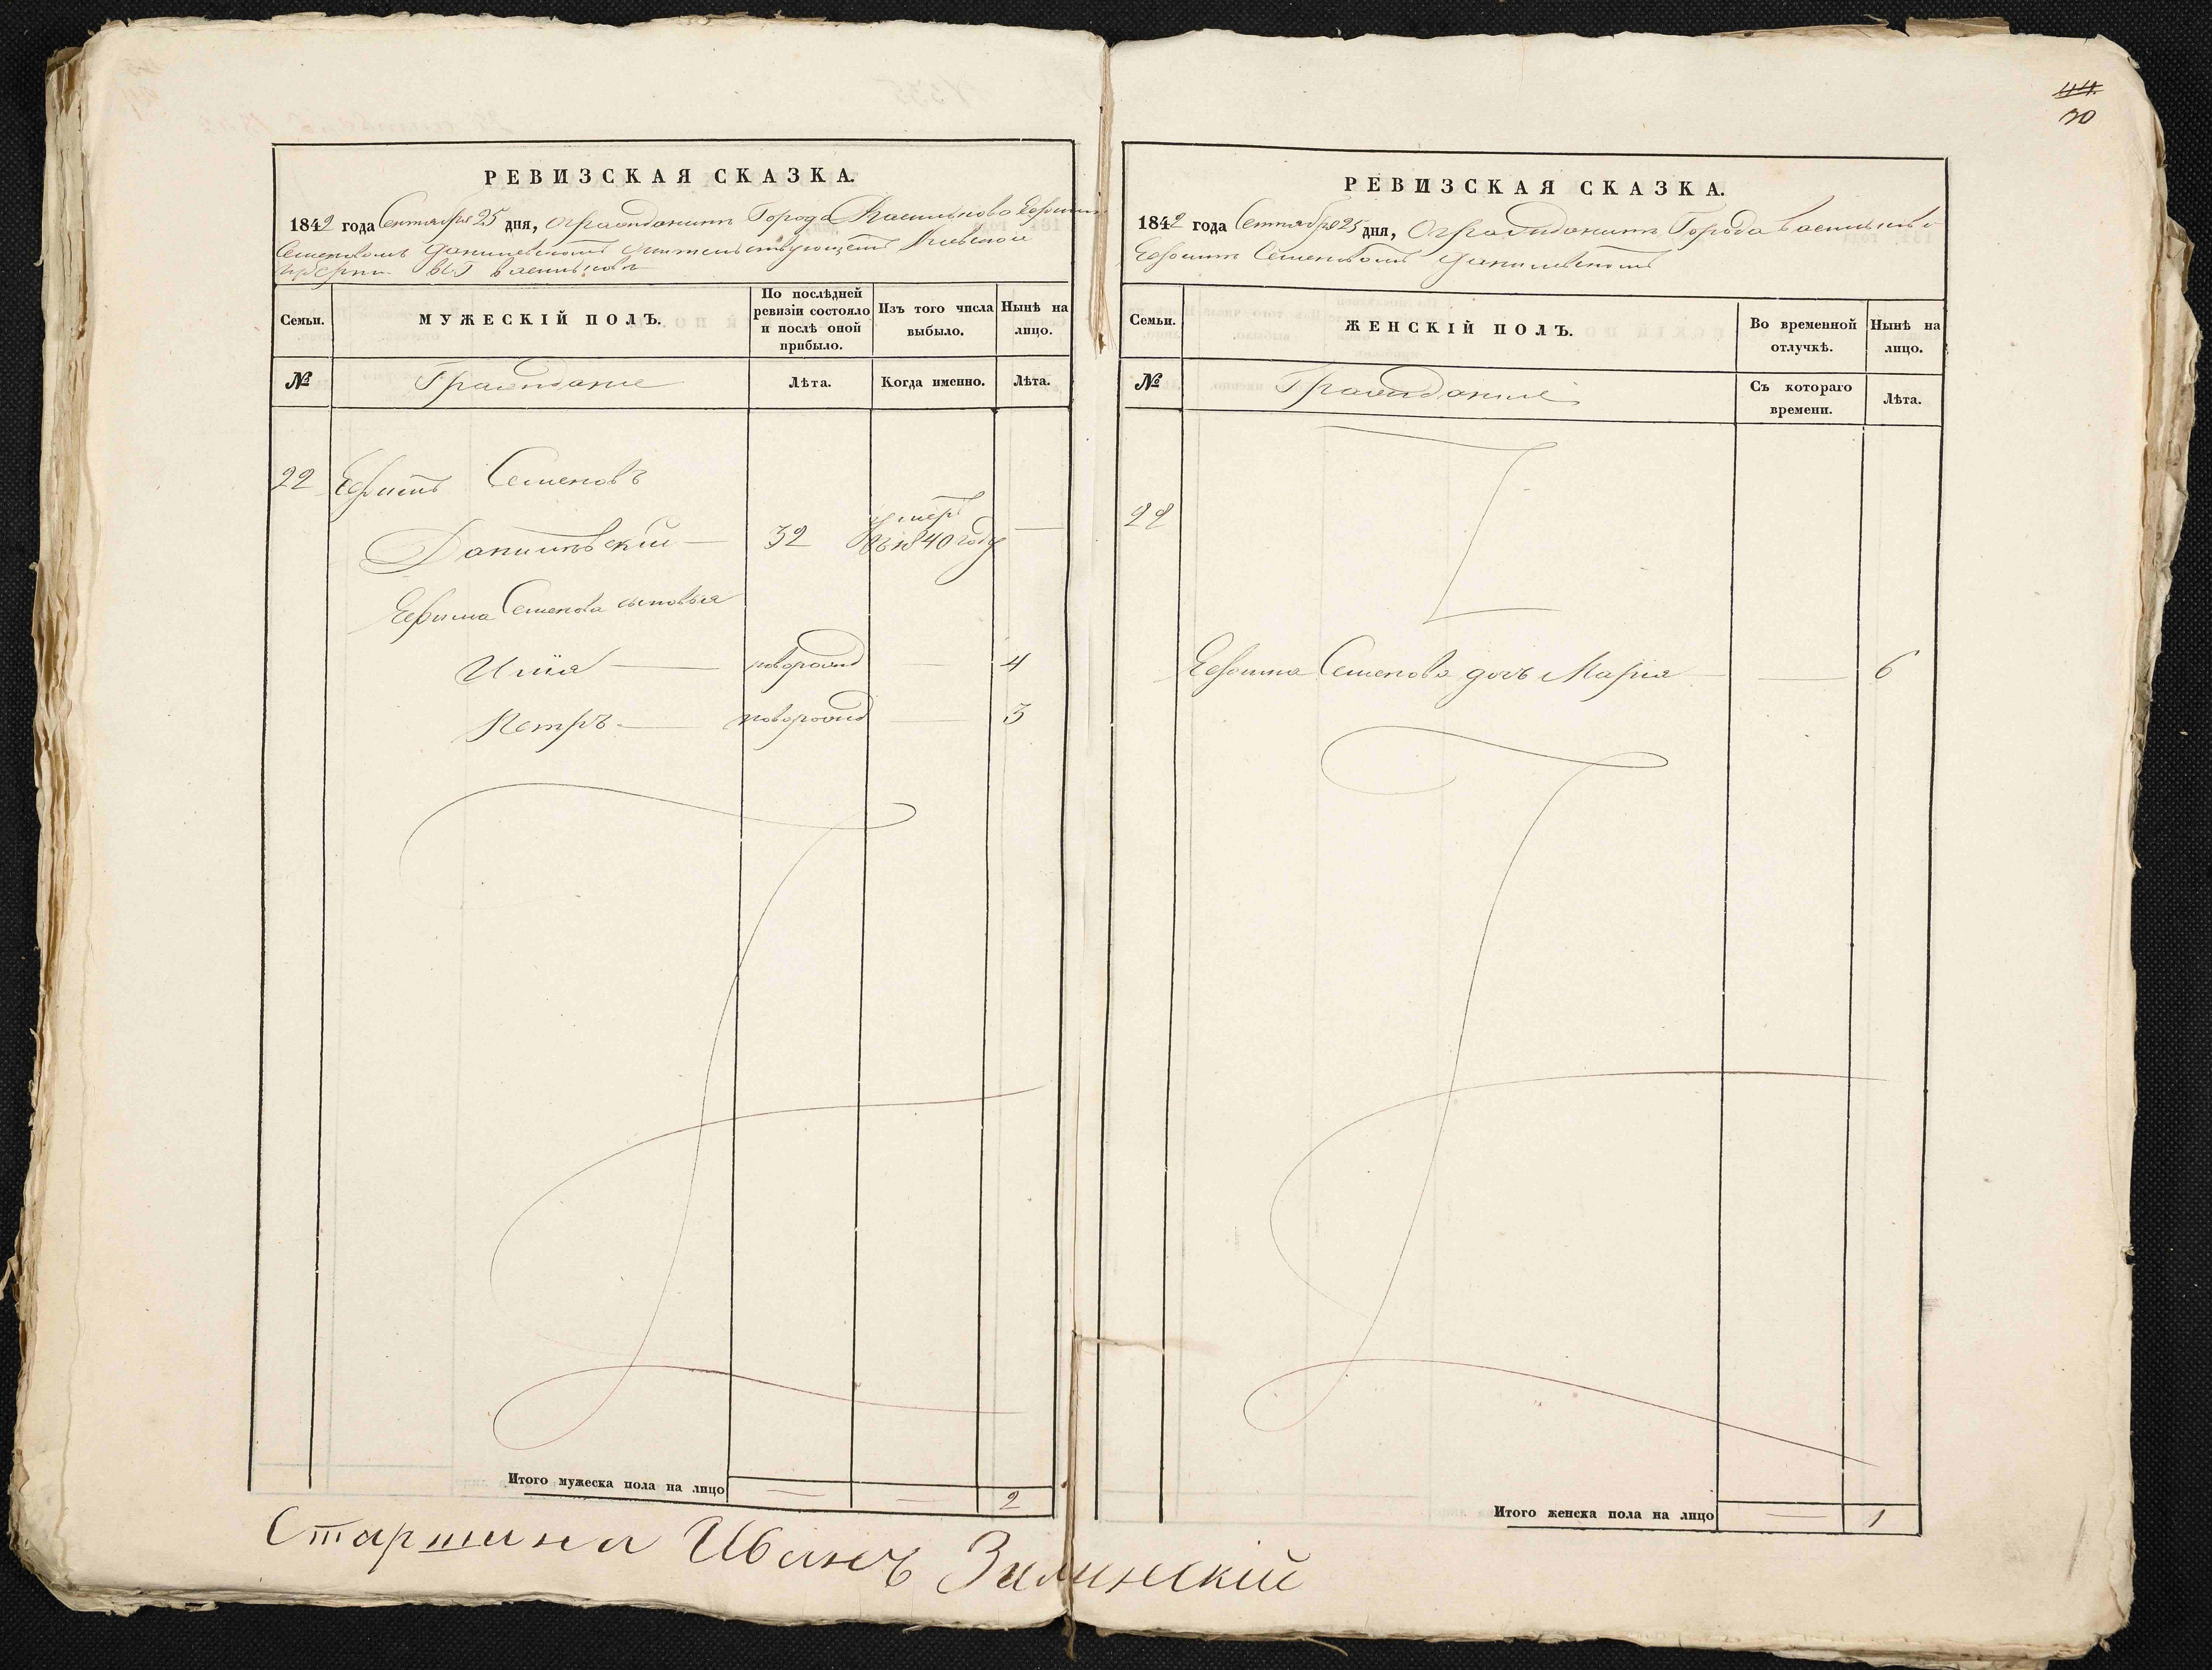 44.
70
РЕВИЗСКАЯ СКАЗКА.
1842 года Сентября 25 дня, о гражданинѣ Города Василькова Ефимѣ
Семеновомъ Данилевскомъ жительствующемъ Кіевской
Губерніи въ Г Васильковѣ
Семьи.
МУЖЕСКІЙ ПОЛЪ.
По послѣдней ревизіи состояло и послѣ оной прибыло.
Изъ того числа выбыло.
Нынѣ на лицо.
№
Граждане
Лѣта.
Когда именно.
Лѣта.
22 Ефимъ Семеновъ
Данилевский — 32 умер въ 1840 году —
Ефима Семенова сыновья
Илія — новорожд — 4
Петръ — новорожд — 3
Итого мужеска пола на лицо — — 2
РЕВИЗСКАЯ СКАЗКА.
1842 года Сентября 25 дня, о гражданинѣ Города Василькова
Ефимѣ Семеновомъ Данилевскомъ
Семьи.
ЖЕНСКІЙ ПОЛЪ.
Во временной отлучкѣ.
Нынѣ на лицо.
№
Граждание
Съ котораго времени.
Лѣта.
22
Ефима Семенова дочь Марія — — 6
Итого женска пола на лицо — 1
Старшина Иванъ Зилинскій